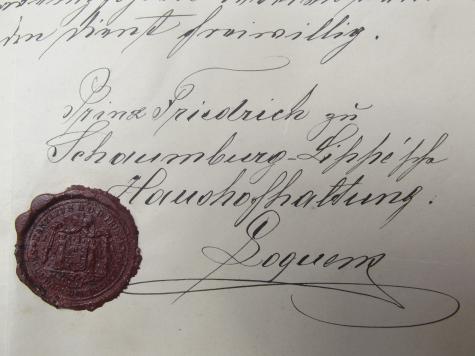 im Dienst freiwillig.
Prinz Friedrich zu
Schaumburg-Lippe'sche
Haushofhaltung.